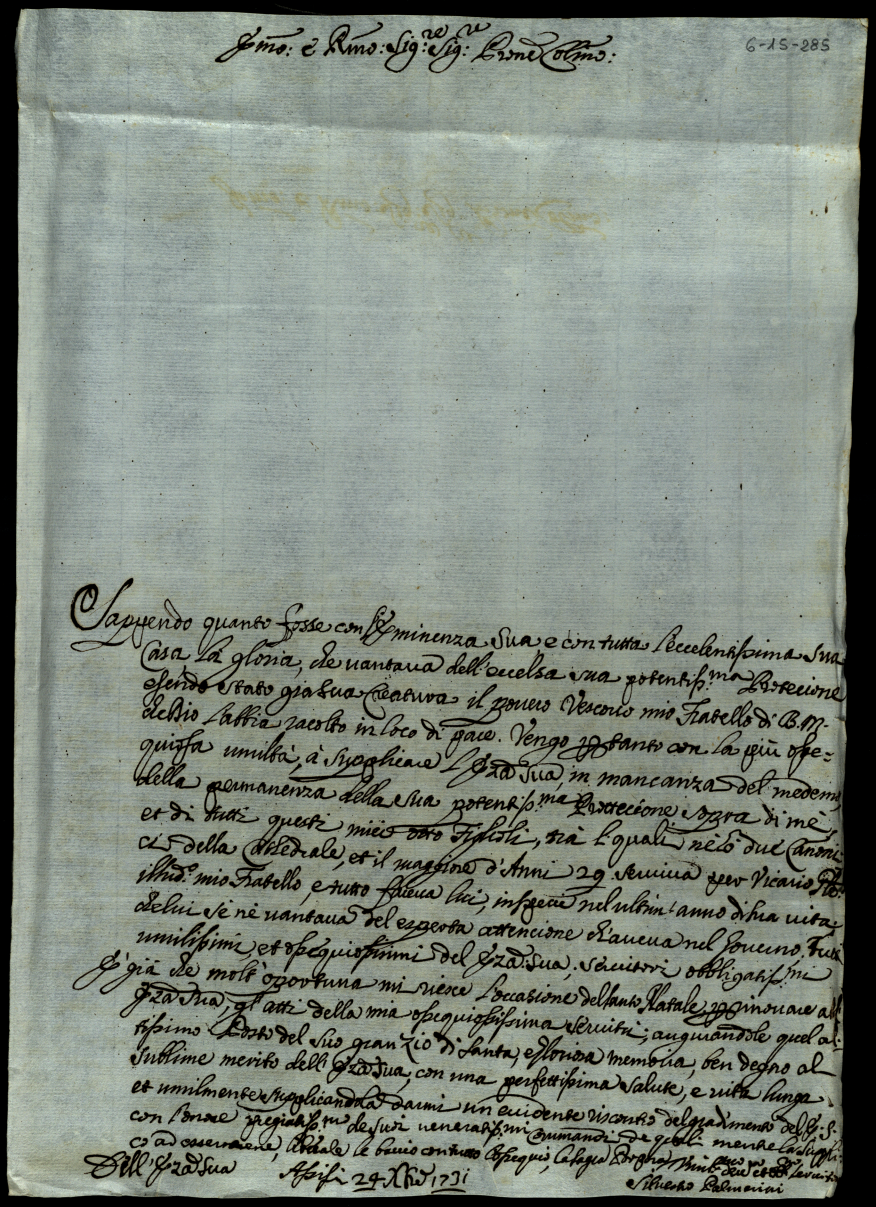 6-15-285
Jllmo: e Rmo: Sig:re Sig:re Prone Colmo:
Sappendo quanto fosse con l'Eminenza Sua e con tutta l'eccelentissima sua
Casa la gloria, che vantava dell'eccelsa sua potentiss:ma Protecione
esendo stato già sua Creatura il povero Vescovo mio Fratello di B. M.
che Dio l'abbia racolto in loco di pace. Vengo per tanto con la più osse=
quiosa umiltà, à supplicare l' Sua, in mancanza del medemo
della permanenza della sua potentiss:ma Protecione sopra di mè,
et di tutti questi miei otto Figlioli, trà l'quali nè sò due Canoni:
ci della Catedrale, et il maggiore d'Anni 29 serviva per Vicario
mio Fratello, e tutto faceva lui, in specie nel ultim'anno di sua vita
che lui sè nè vantava del esperta attencione ch'aveva nel Governo. Tutti
umilissimi, et ossequiosissimi del Sua, servitori obbligatiss:mi
E già che molt'oportuna mi riesce l'occasione del santo Natale per rinovare
Sua, gl'atti della mia ossequiosissima servitù; auguràndole quel al:
tissimo Posto del suo gran Zio di Santa, e Gloriosa memoria, ben degno al
sublime merito dell' Sua, con una perfettissima salute, e vita lunga
et umilmente supplicandola darmi un evidente riscontro del gradimento
con l'onore pregiatiss:mo de suoi veneratiss:mi Comandi, de quali mente la suppli:
co ad , le bacio con tutto ossequio, la sagra Porpora
Dell' Sua Assisi 24 Xbre 1731
Silvestro Palmerini